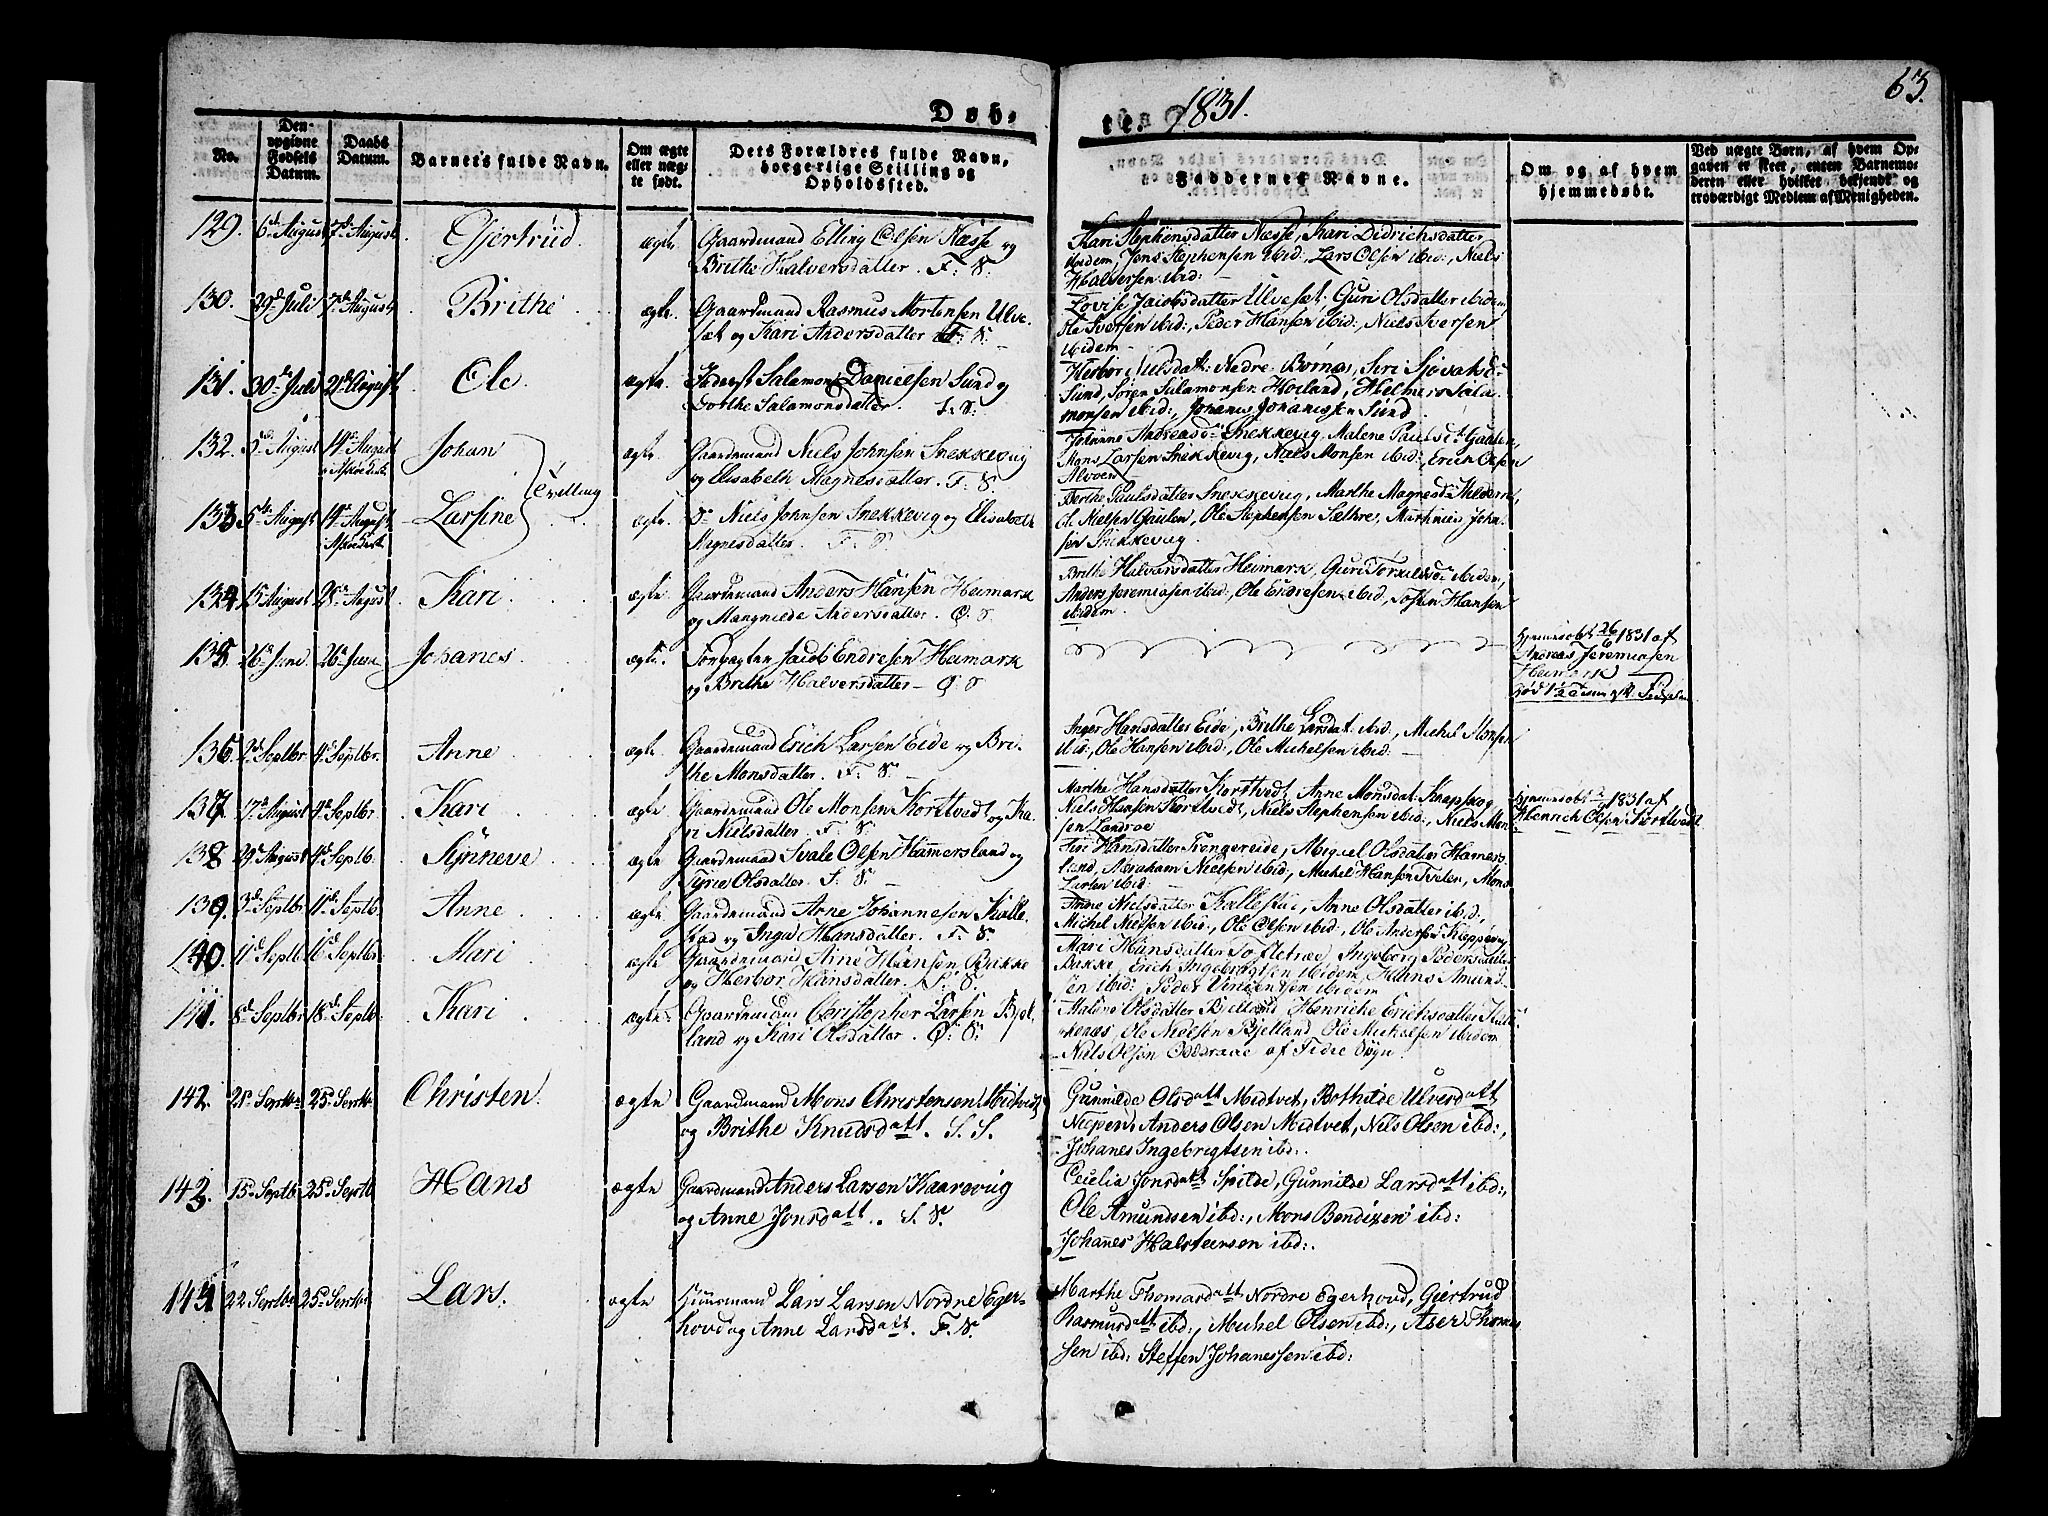 63.
Døb-
te. 1831.
No.
Den opgivne Fødsels Datum.
Daabs Datum.
Barnets fulde Navn.
Om ægte eller uægte født.
Dets Forældres fulde Navn, borgerlige Stilling og Opholdssted.
Faddernes Navne.
Om og af hvem hjemmedøbt.
Ved uægte Børn, af hvem Opgaven er skeet, enten Barnemoderen eller hvilket bekjendt og troværdigt Medlem af Menigheden.
129. 6d August 7d August Gjertrüd ægte Gaardmand Elling Olsen Næsse og
Brithe Halversdatter. F: S.
Kari Stephensdatter Næsse, Kari Didrichsdatter
ibidem, Jens Stephensen ibid:, Lars Olsen ibid:, Niels
Halversen ibid:
130. 29d Juli 7d August Brithe ægte. Gaardmand Rasmus Mortensen Ulve-
sæt og Kari Andersdatter F: S.
Lovise Jacobsdatter Ulvesæt, Guri Olsdatter ibidem,
Ole Iversen ibid:, Peder Hansen ibid:, Niels Iversen
ibidem
131. 30d Juli 21d August Ole ægte. Inderst Salamon Danielsen Sund og
Dorthe Salamonsdatter. S: S.
Herbor Nielsdatt: Nedre Børnes, Siri Sjovatsd:
Sund, Søren Salamonsen Hoeland, Helmer Sala-
monsen ibid:, Johanes Johannessen Sund.
132. 5d August 14d August Johan ægte. Gaardemand Niels Johnsen Snekkevig
og Elisabeth Magnesdatter. F: S.
Johanne Andreasd: Snekkevig, Malene Paulsd: Gaulen,
Mons Larsen Snekkevig, Niels Monsen ibid:, Erich Olsen
Alvøen
Tvilling
133 5d August 14d August Larsine ægte do Niels Johnsen Snekkevig og Elisabeth
Magnesdatter. F. S.
Berthe Paulsdatter Snekkevig, Marthe Magnesd:
Ole Nielsen Gaulen, Ole Stephensen Sæthre, Martinus John-
sen Snekkevig.
134 15 August 28d August Kari ægte Gaardemand Anders Hansen Heimark
og Mangnilde Andersdatter. Ø. S.
Brithe Halversdatter Heimark, Guri Torkildsd: ibidem,
Anders Jeremiasen ibid:, Ole Endresen ibid, Hansen
ibidem.
135 26d Juni 26d Juni Johanes ægte. Forpagter Jacob Endresen Heimark
og Brithe Halversdatter - Ø: S
Hjemmedøbt 26/6 1831 af
Andreas Jeremiasen
Heimark
136 2d Septbr 4d Septbr. Anne ægte Gaardemand Erich Larsen Eide og Bri-
the Monsdatter. F: S.
Inger Hansdatter Eide, Brithe Larsdat: ibid:, Michel Monsen
ibid:, Ole Hansen ibid:, Ole Michelsen ibid:
137 17d August 4d Septbr. Kari ægte Gaardemand Ole Monsen Kortvedt og Ka-
ri Nielsdatter. F: S.
Marthe Hansdatter Kortvedt, Anne Monsdat: Knapskog,
Niels Hansen Kortvedt, Niels Stephensen ibid:, Niels Mon-
sen Landroe
Hjemmedøbt 1831 af
Henrich Olsen Kortvedt
138 29d August 4d Septb. Synneve ægte Gaardemand Svale Olsen Hammersland og
Syrie Olsdatter. S: S.
Siri Hansdatter Trongereide, Miquel Olsdatter Hamers-
land, Abraham Nielsen ibid:, Michel Hansen Tvelen, Mons
Larsen ibid:
139. 3d Septbr 11d Septb. Anne ægte Gaardemand Arne Johannesen Kalle-
stad og Inga Hansdatter. F: S.
Anne Nielsdatter Kallestad, Anne Olsdatter ibid,
Michel Nielsen ibid:, Ole Olsen ibid, Ole Andersen Kleppevig
140. 1d Septb. 18d Septbr Mari ægte Gaardemand Arne Hansen Bakke
og Herbor Hansdatter. S: S.
Mari Hansdatter Tofteræ, Ingeborg Pedersdatter
Bakke, Erich Ingebrigtsen ibidem, Hans Amund-
sen ibid:, Peder ibidem
141. 8d Septbr 18d Septbr Kari ægte Gaardemand Christopher Larsen Bjel-
land og Kari Olsdatter. Ø: S.
Malene Olsdatter Bjelland, Henriche Erichsdatter
Ole Nielsen Bjelland, Ole Mickelsen ibidem
Niels Olsen Oddraae af Fedie Sogn
142. 21d Septbr 25d Septbr Christen. ægte Gaardmand Mons Christensen Midtvedt
og Brithe Knudsdatt. S. S.
Gunnilde Olsdatt Midtvet, Bothilde Ulversdatt
Niepen, Anders Olsen Midtvet, Niels Olsen ibd:,
Johanes Ingebrigtsen ibd:.
143. 15d Septbr 25d Septb Hans ægte Gaardmand Anders Larsen Kaarevig
og Anne Jonsdatt. S. S.
Cecilia Jonsdatt Spilde, Gunnilde Larsdatt ibd:,
Ole Amundsen ibd:, Mons Bendixen ibd:
Johanes Halsteensen ibd:.
144 22 Septbr 25d Septbr Lars. ægte Huusmand Lars Larsen Nordre Eger-
hovd og Anne Larsdatt. F. S.
Marthe Thomasdatt Nordre Egerhovd, Giertrud
Rasmusdatt ibd:, Michel Olsen ibd:, Aser Thomas-
sen ibd: Steffen Johanessen ibd: